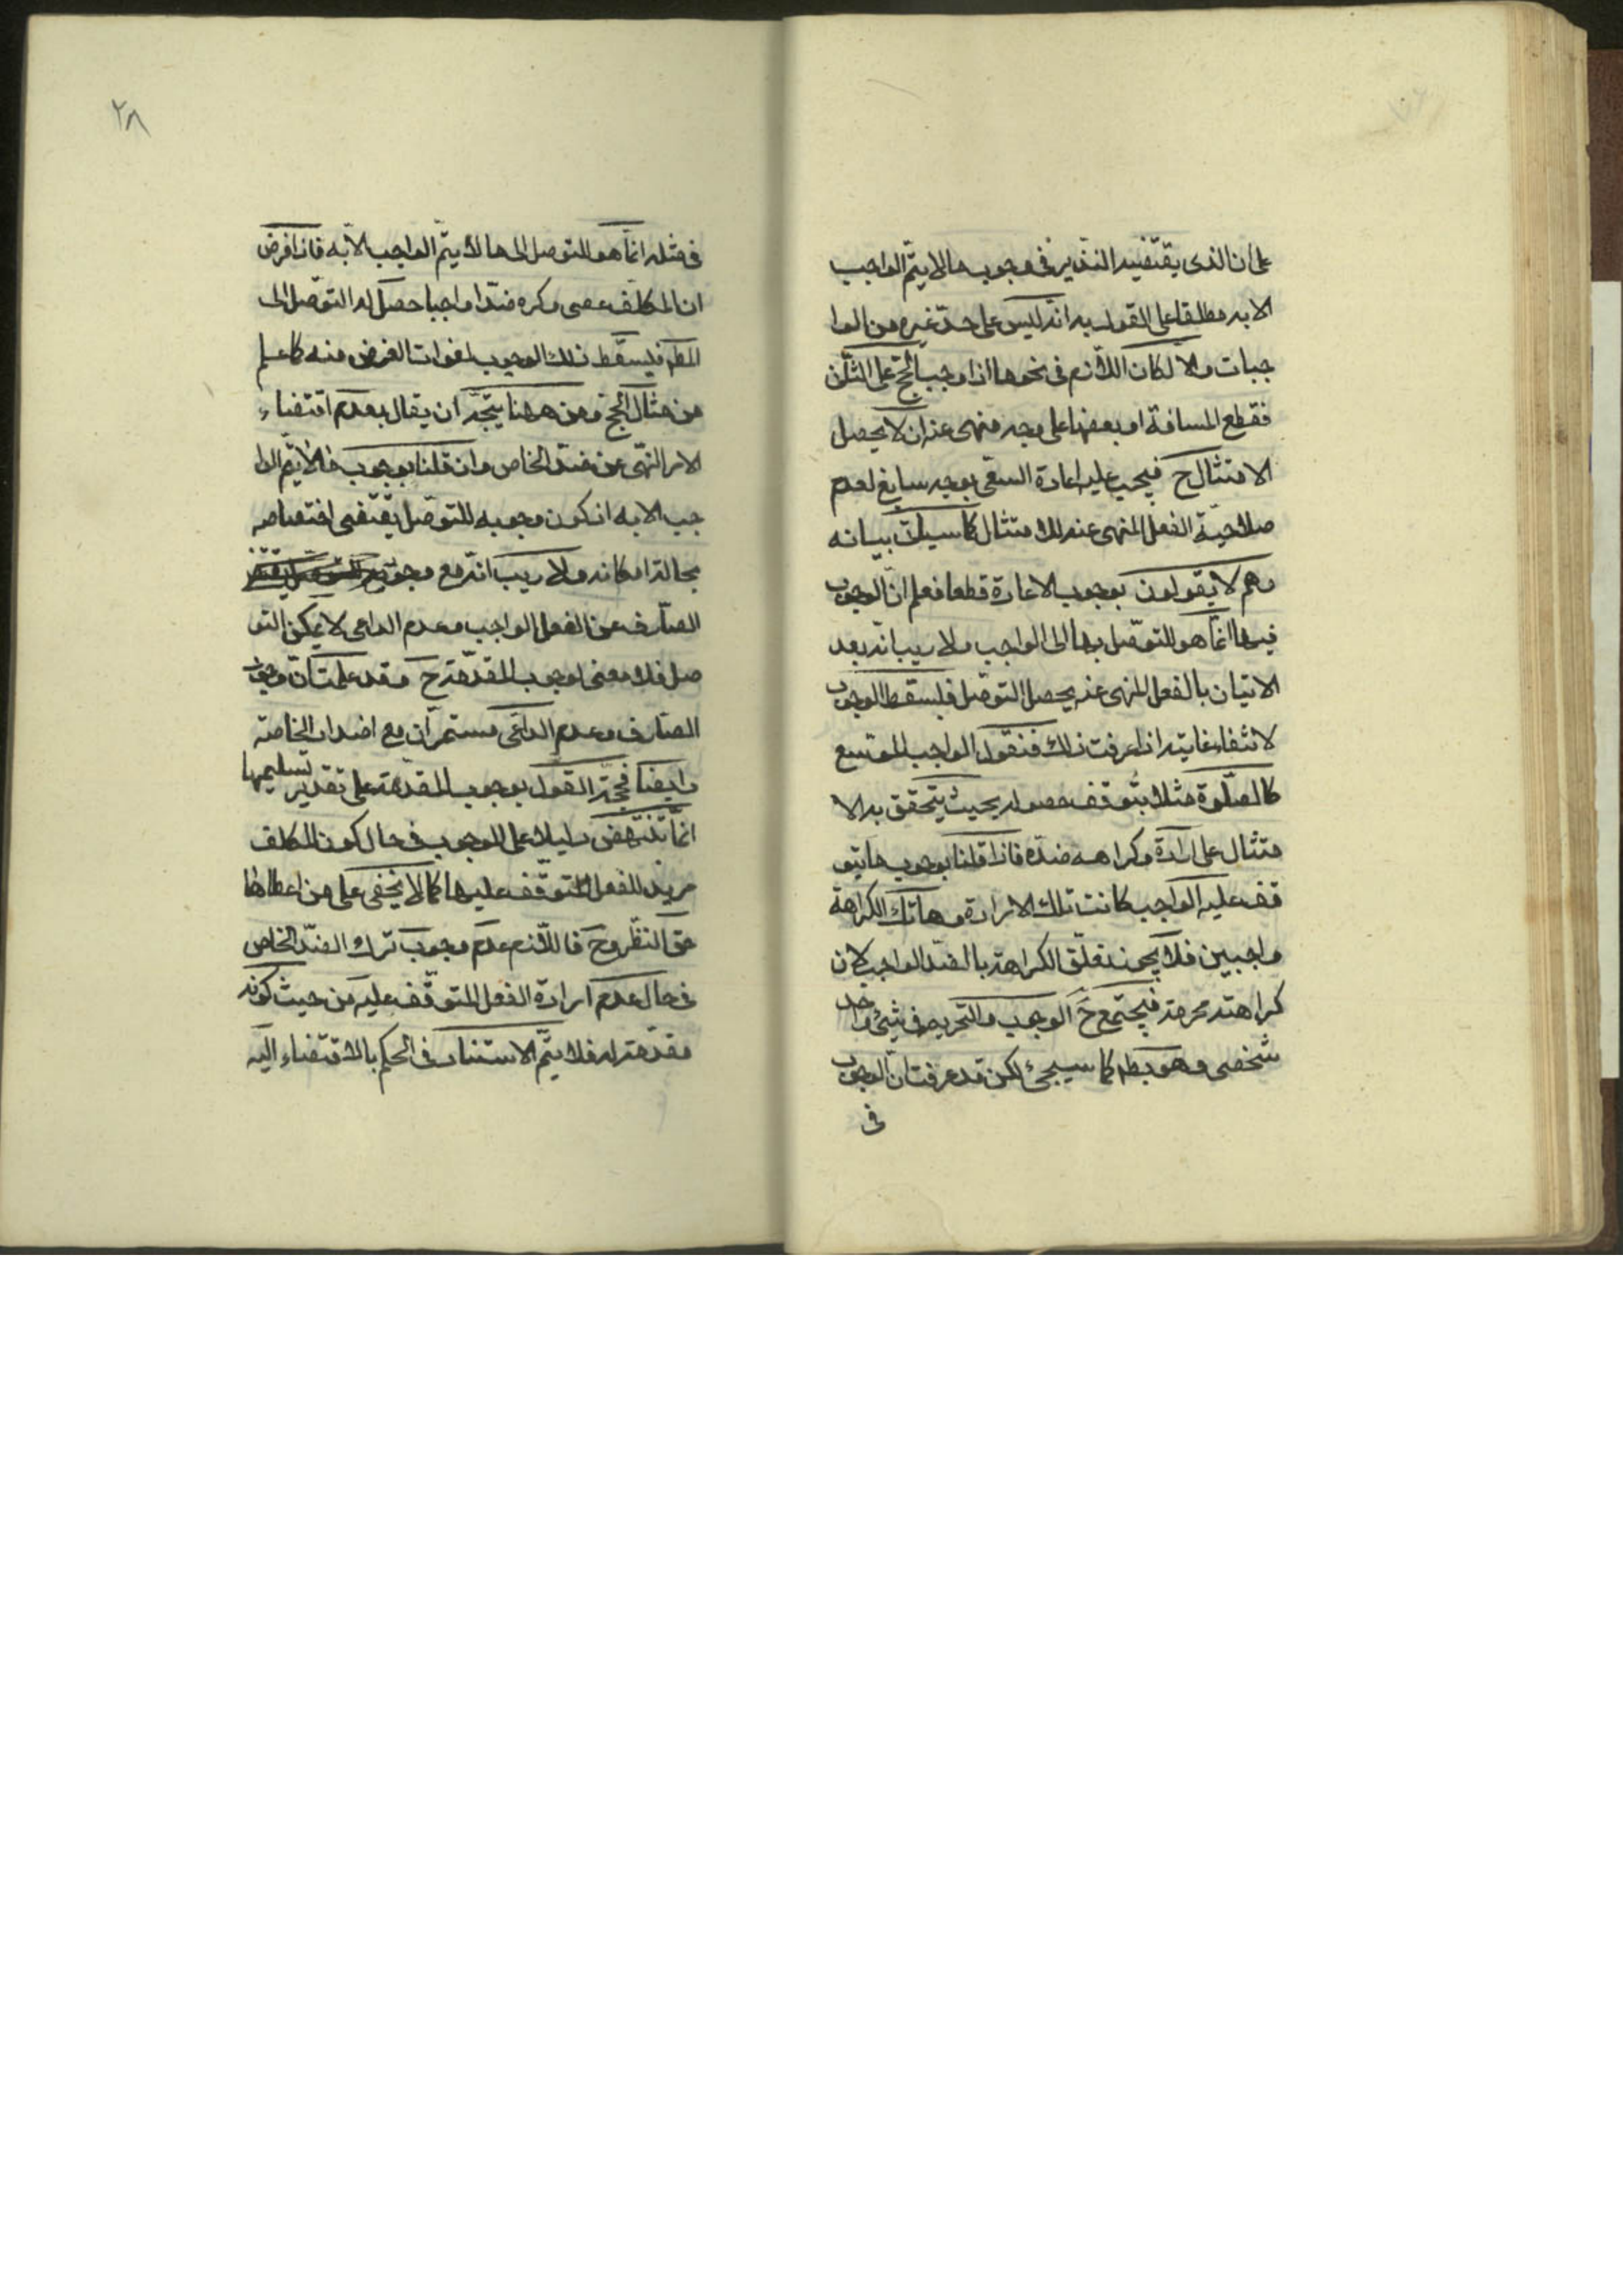 على ان الذى يقتضيه التدبر فى وجوب مالا يتم الواجب
الا به مطلقا على القول به انه ليس على حد غيره من الوا
جبات والا لكان اللازم فى نحو ما اذا وجب الحج على النائى
فقطع المسافة او بعضها على وجه منهى عنه ان لا يحصل
الامتثال ح فيجب عليه اعادة السعى بوجه سايغ لعدم
صلاحية الفعل المنهى عنه للامتثال كما سياتى بيانه
وهم لا يقولون بوجوب الاعادة قطعا فعلم ان الوجوب
فيها انما هو للتوصل بها الى الواجب ولا ريب انه بعد
الاتيان بالفعل المنهى عنه يحصل التوصل فليسقط الوجوب
لانتفاء غايته اذا عرفت ذلك فنقول الواجب الموسع
كالصلوة مثلا يتوقف حصوله بحيث يتحقق به الا
متثال على ارادة وكراهه ضده فاذا قلنا بوجوب ما يتو
قف عليه الواجب كانت تلك الارادة وهاتك الكراهة
واجبين فلا يجوز تعلق الكراهة بالضد الواجب لان
كراهته محرمة فيجتمع ح الوجوب والتحريم فى شئ واحد
شخصى وهو بط كما سيجئ لكن قد عرفت ان الوجوب
فى
٢٨
فى مثله انما هو للتوصل الى مالا يتم الواجب الا به فاذا فرض
ان المكلف عصى وكره ضدا واجبا حصل له التوصل الى
المط فليسقط ذلك الوجوب لفوات الغرض منه كما علم
من مثال الحج ومن ههنا يتجه ان يقال بعدم اقتضاء
الامر النهى عن ضده الخاص وان قلنا بوجوب مالا يتم الوا
جب الا به اذ كون وجوبه للتوصل يقتضى اختصاصه
بحالة امكانه ولا ريب انه مع وجود
الصارف عن الفعل الواجب وعدم الداعى لا يمكن التو
صل فلا معنى لوجوب المقدمة ح وقد علمت ان وجود
الصارف وعدم الداعى مستمران مع اضداد الخاصة
وايضا فحجة القول بوجوب المقدمة على تقدير تسليمها
انما تنهض دليلا على الوجوب فى حال كون المكلف
مريد للفعل المتوقف عليها كما لا يخفى على من اعطاها
حق النظر وح فاللازم عدم وجوب ترك الضد الخاص
فى حال عدم ارادة الفعل المتوقف عليه من حيث كونه
مقدمة له فلا يتم الاستناد فى الحكم بالاقتضاء اليه